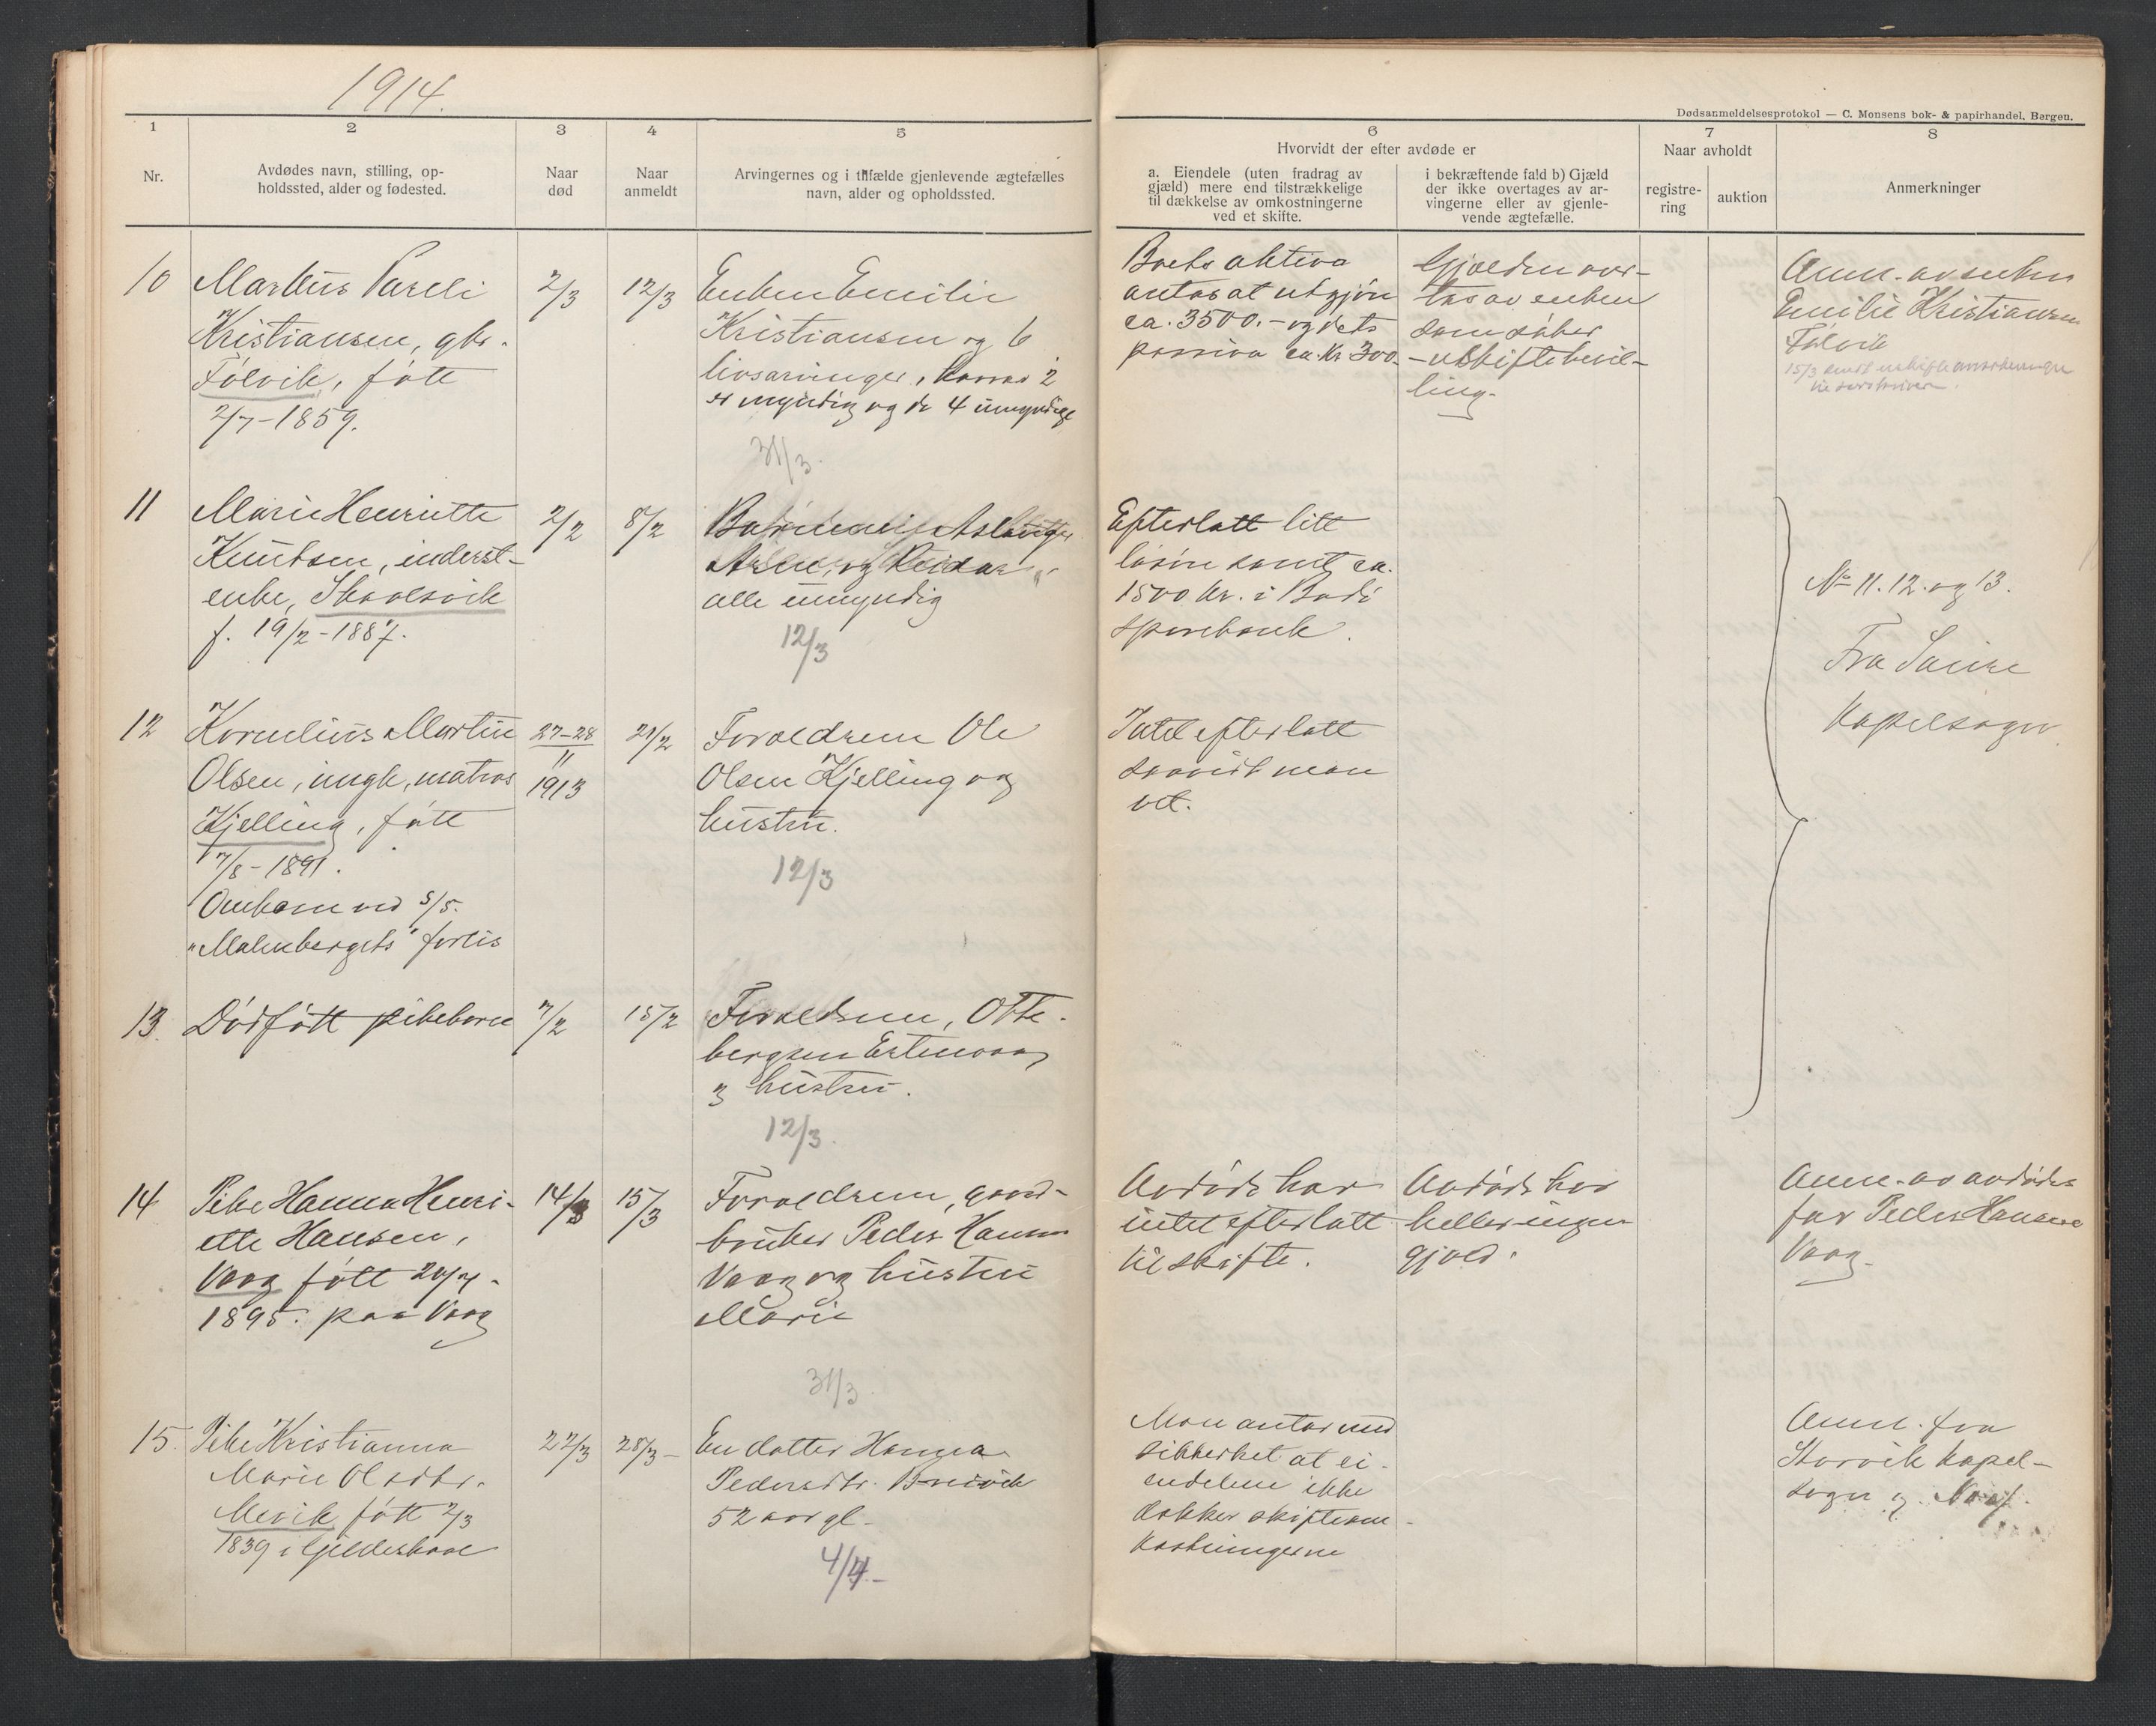 1914.
Dødsanmeldelsesprotokol — C. Monsens bok- & papirhandel, Bergen.
1
2
3
4
5
6
7
8
Nr.
Avdødes navn, stilling, op-
holdssted, alder og fødested.
Naar
død
Naar
anmeldt
Arvingernes og i tilfælde gjenlevende ægtefælles
navn, alder og opholdssted.
Hvorvidt der efter avdøde er
a. Eiendele (uten fradrag av
gjæld) mere end tilstrækkelige
til dækkelse av omkostningerne
ved et skifte.
i bekræftende fald b) Gjæld
der ikke overtages av ar-
vingerne eller av gjenle-
vende ægtefælle.
Naar avholdt
registre-
ring
auktion
Anmerkninger
10
Markus Pareli
Kristiansen, gbr.
Følvik, født
2/7-1859.
2/3
12/3
Enken Emilie
Kristiansen og 6
livsarvinger, hvorav 2
er myndig og de 4 umyndige
31/3.
Boets aktiva
antas at utgjøre
ca. 3500.- og dets
passiva ca. Kr 300.-
Gjælden over-
tas av enken
som søker
uskiftebevil-
ling.
Anm. av enken
Emilie Kristiansen
Følvik
15/3 sendt uskifteansøkningen
til sorenskriveren.
11
Marie Henriette
Knutsen, inderst-
enke, Skaalsvik
f. 19/2-1887.
2/2
8/2
Børnene Aslaug
Arne, og Reidar
alle umyndig
12/3
Efterlatt litt
løsøre samt ca.
1500 kr. i Bodø
sparebank.
No 11. 12. og 13.
Fra Saura
Kapelsogn
12
Kornelius Martin
Olsen, ungk, matros
Kjelling, født
7/8-1891.
Omkom ved S/S.
"Malmbergets" forlis
27-28
11
1913
21/2
Forældrene Ole
Olsen Kjelling og
hustru.
12/3
Intet efterlatt
saavidt man
vet.
13.
Dødfødt pikebarn
7/2
15/2
Forældrene, Otte-
bergsen
og hustru.
12/3.
14
Pike Hanna Henri-
ette Hansen,
Vaag født 20/7-
1895. paa Vaag
14/3
15/3
Forældrene, gaard-
bruker Peder Hansen
Vaag og hustru
Marie
31/3.
Avdøde har
intet efterlatt
til skifte.
Avdøde har
heller ingen
gjæld.
Anm. av avdødes
far Peder Hansen
Vaag.
15.
Pike Kristianna
Marie Olsdtr.
Mevik født 2/3
1839 i Gildeskaal
22/3
28/3-
En datter Hanna
Pedersdtr. Breivik
52 aar gl.
4/4-
Man antar med
sikkerhet at ei-
endelene ikke
dækker skifteom-
kostningerne
Anm. fra
Storvik kapel-
sogn